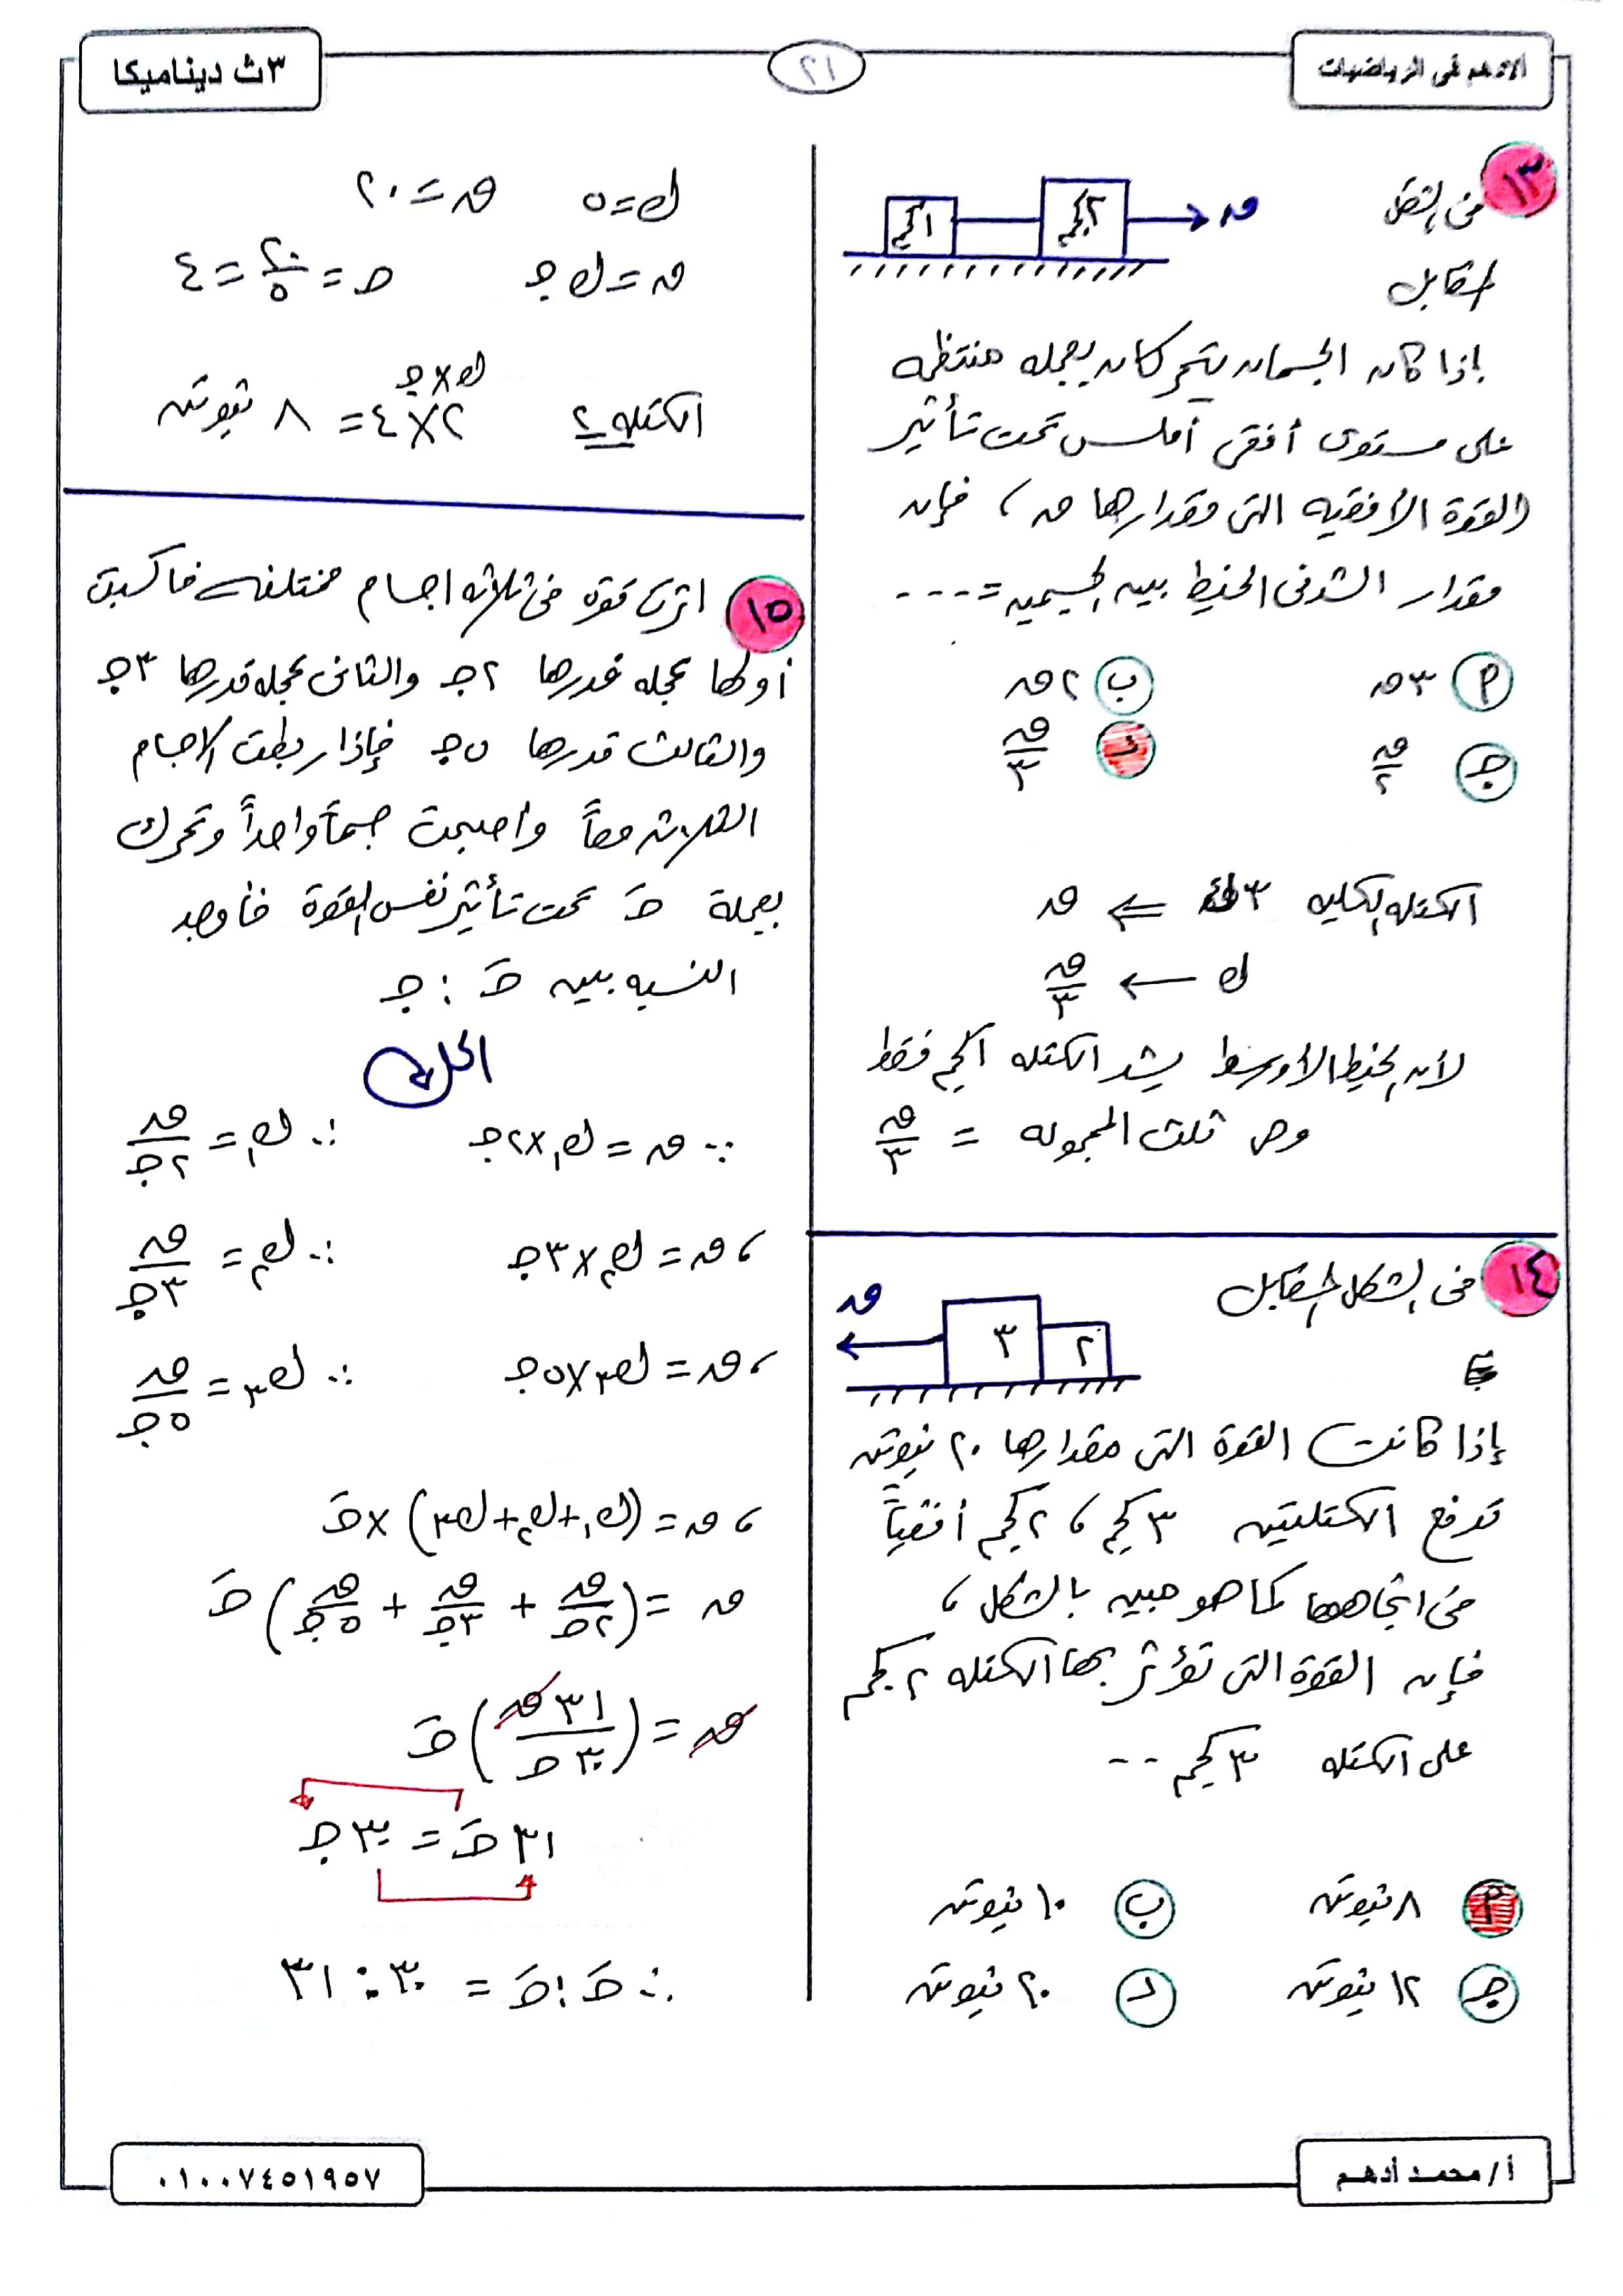 الأدهم فى الرياضيات
٢١
٣ث ديناميكا
١٣ فى الشكل
المقابل
١كجم ٢كجم ← ق
إذا كان الجسمان يتحركان بعجله منتظمه
على مستوى أفقى أملس تحت تأثير
القوة الأفقيه التى مقدارها ق ، فإن
مقدار الشد فى الخيط بين الجسمين = ---
أ ٣ق ب ٢ق
ج ق/٢ د ق/٣
الكتله الكليه ٣ك ⇐ ق
ك ← ق/٣
لأن الخيط الأوسط يشد الكتله ١كجم فقط
وهى ثلث المجموعه = ق/٣
١٤ فى الشكل المقابل
ق ٣ ٢
إذا كانت القوة التى مقدارها ٢٠ نيوتن
تدفع الكتلتين ٣كجم ، ٢كجم أفقياً
فى اتجاهها كما هو مبين بالشكل ،
فإن القوة التى تؤثر بها الكتله ٢كجم
على الكتله ٣كجم --
أ ٨ نيوتن ب ١٠ نيوتن
ج ١٢ نيوتن د ٢٠ نيوتن
ك = ٥ ق = ٢٠
ق = ك ج ج = ٢٠/٥ = ٤
ك × ج
الكتله ٢ ٢ × ٤ = ٨ نيوتن
١٥ اثرت قوة فى ثلاثه اجسام مختلفه فاكسبت
أولها عجله قدرها ٢ج والثانى عجله قدرها ٣ج
والثالث قدرها ٥ج فإذا ربطت الاجسام
الثلاثه معاً واصبحت جسماً واحداً وتحرك
بعجلة جَ تحت تأثير نفس القوة فأوجد
النسبه بين جَ : ج
الحل
∵ ق = ك١ × ٢ج ∴ ك١ = ق/٢ج
، ق = ك٢ × ٣ج ∴ ك٢ = ق/٣ج
، ق = ك٣ × ٥ج ∴ ك٣ = ق/٥ج
، ق = (ك١ + ك٢ + ك٣) × جَ
ق = (ق/٢ج + ق/٣ج + ق/٥ج) جَ
ق = (٣١ق/٣٠ج) جَ
٣١ جَ = ٣٠ ج
∴ جَ : ج = ٣٠ : ٣١
أ/ محمد أدهم
٠١٠٠٧٤٥١٩٥٧